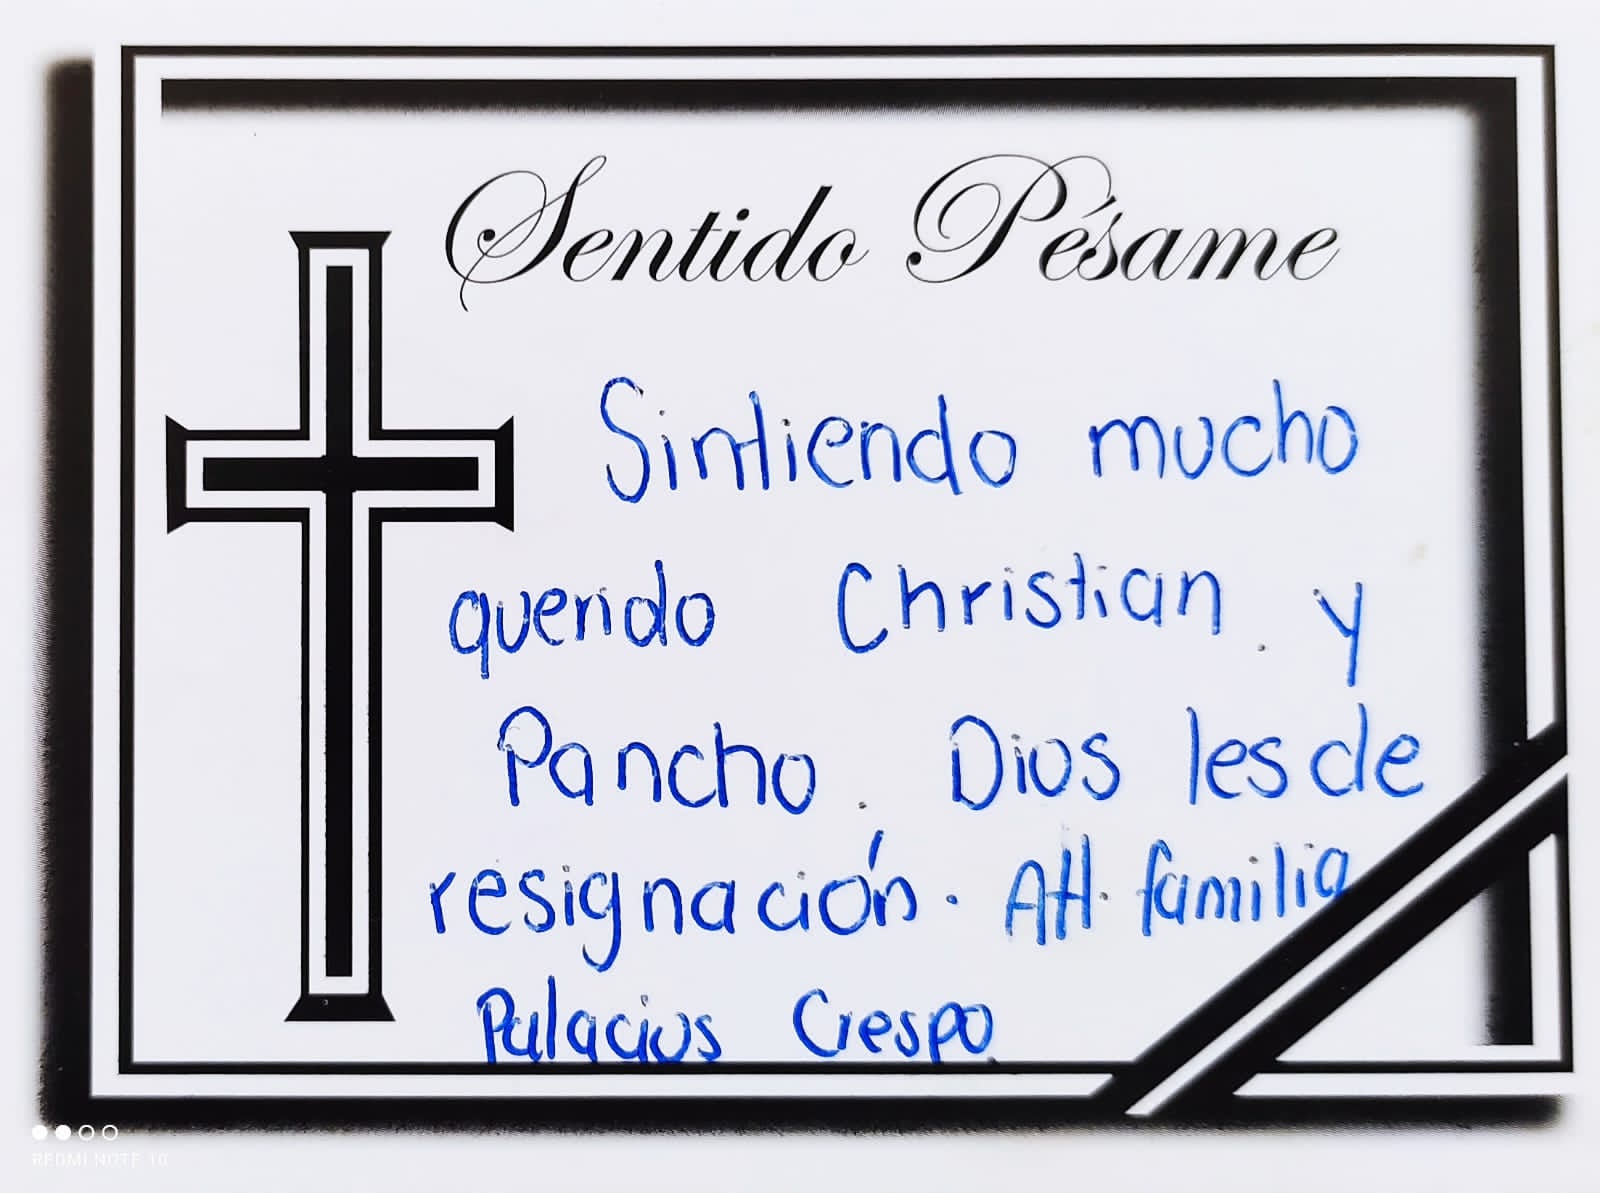 Sentido Pésame
Sintiendo mucho
querido Christian. y
Pancho. Dios les de
resignación. Att. familia
Palacios Crespo
REDMI NOTE 10